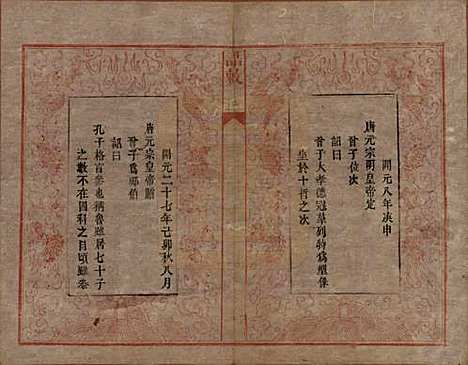 開元八年庚申
唐元宗明皇帝定
曾子位次
詔曰
曾子大孝德冠羣列特爲塑像
坐於十哲之次
誥敕
開元二十七年己卯秋八月
唐元宗皇帝贈
曾子爲郕伯
詔曰
孔子格言參也稱魯雖居七十子
之數不在四科之目頃雖參